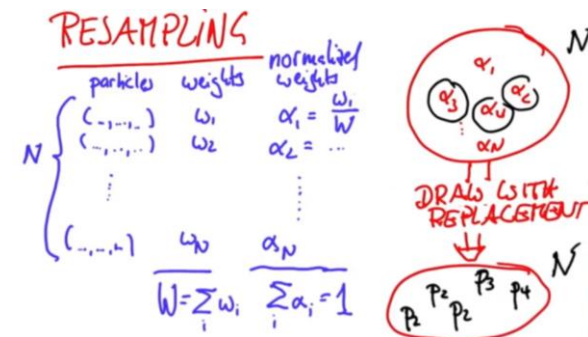 RESAMPLING
particles weights normalized weights
(-,-,-) ω₁ α₁ = ω₁/W
(-,-,-) ω₂ α₂ = ...
N
(-,-,-) ω_N α_N
W = Σᵢ ωᵢ Σᵢ αᵢ = 1
N
α₁
α₃ α₄ α₂
α_N
DRAW WITH
REPLACEMENT
N
p₂ p₃ p₄
p₂ p₂